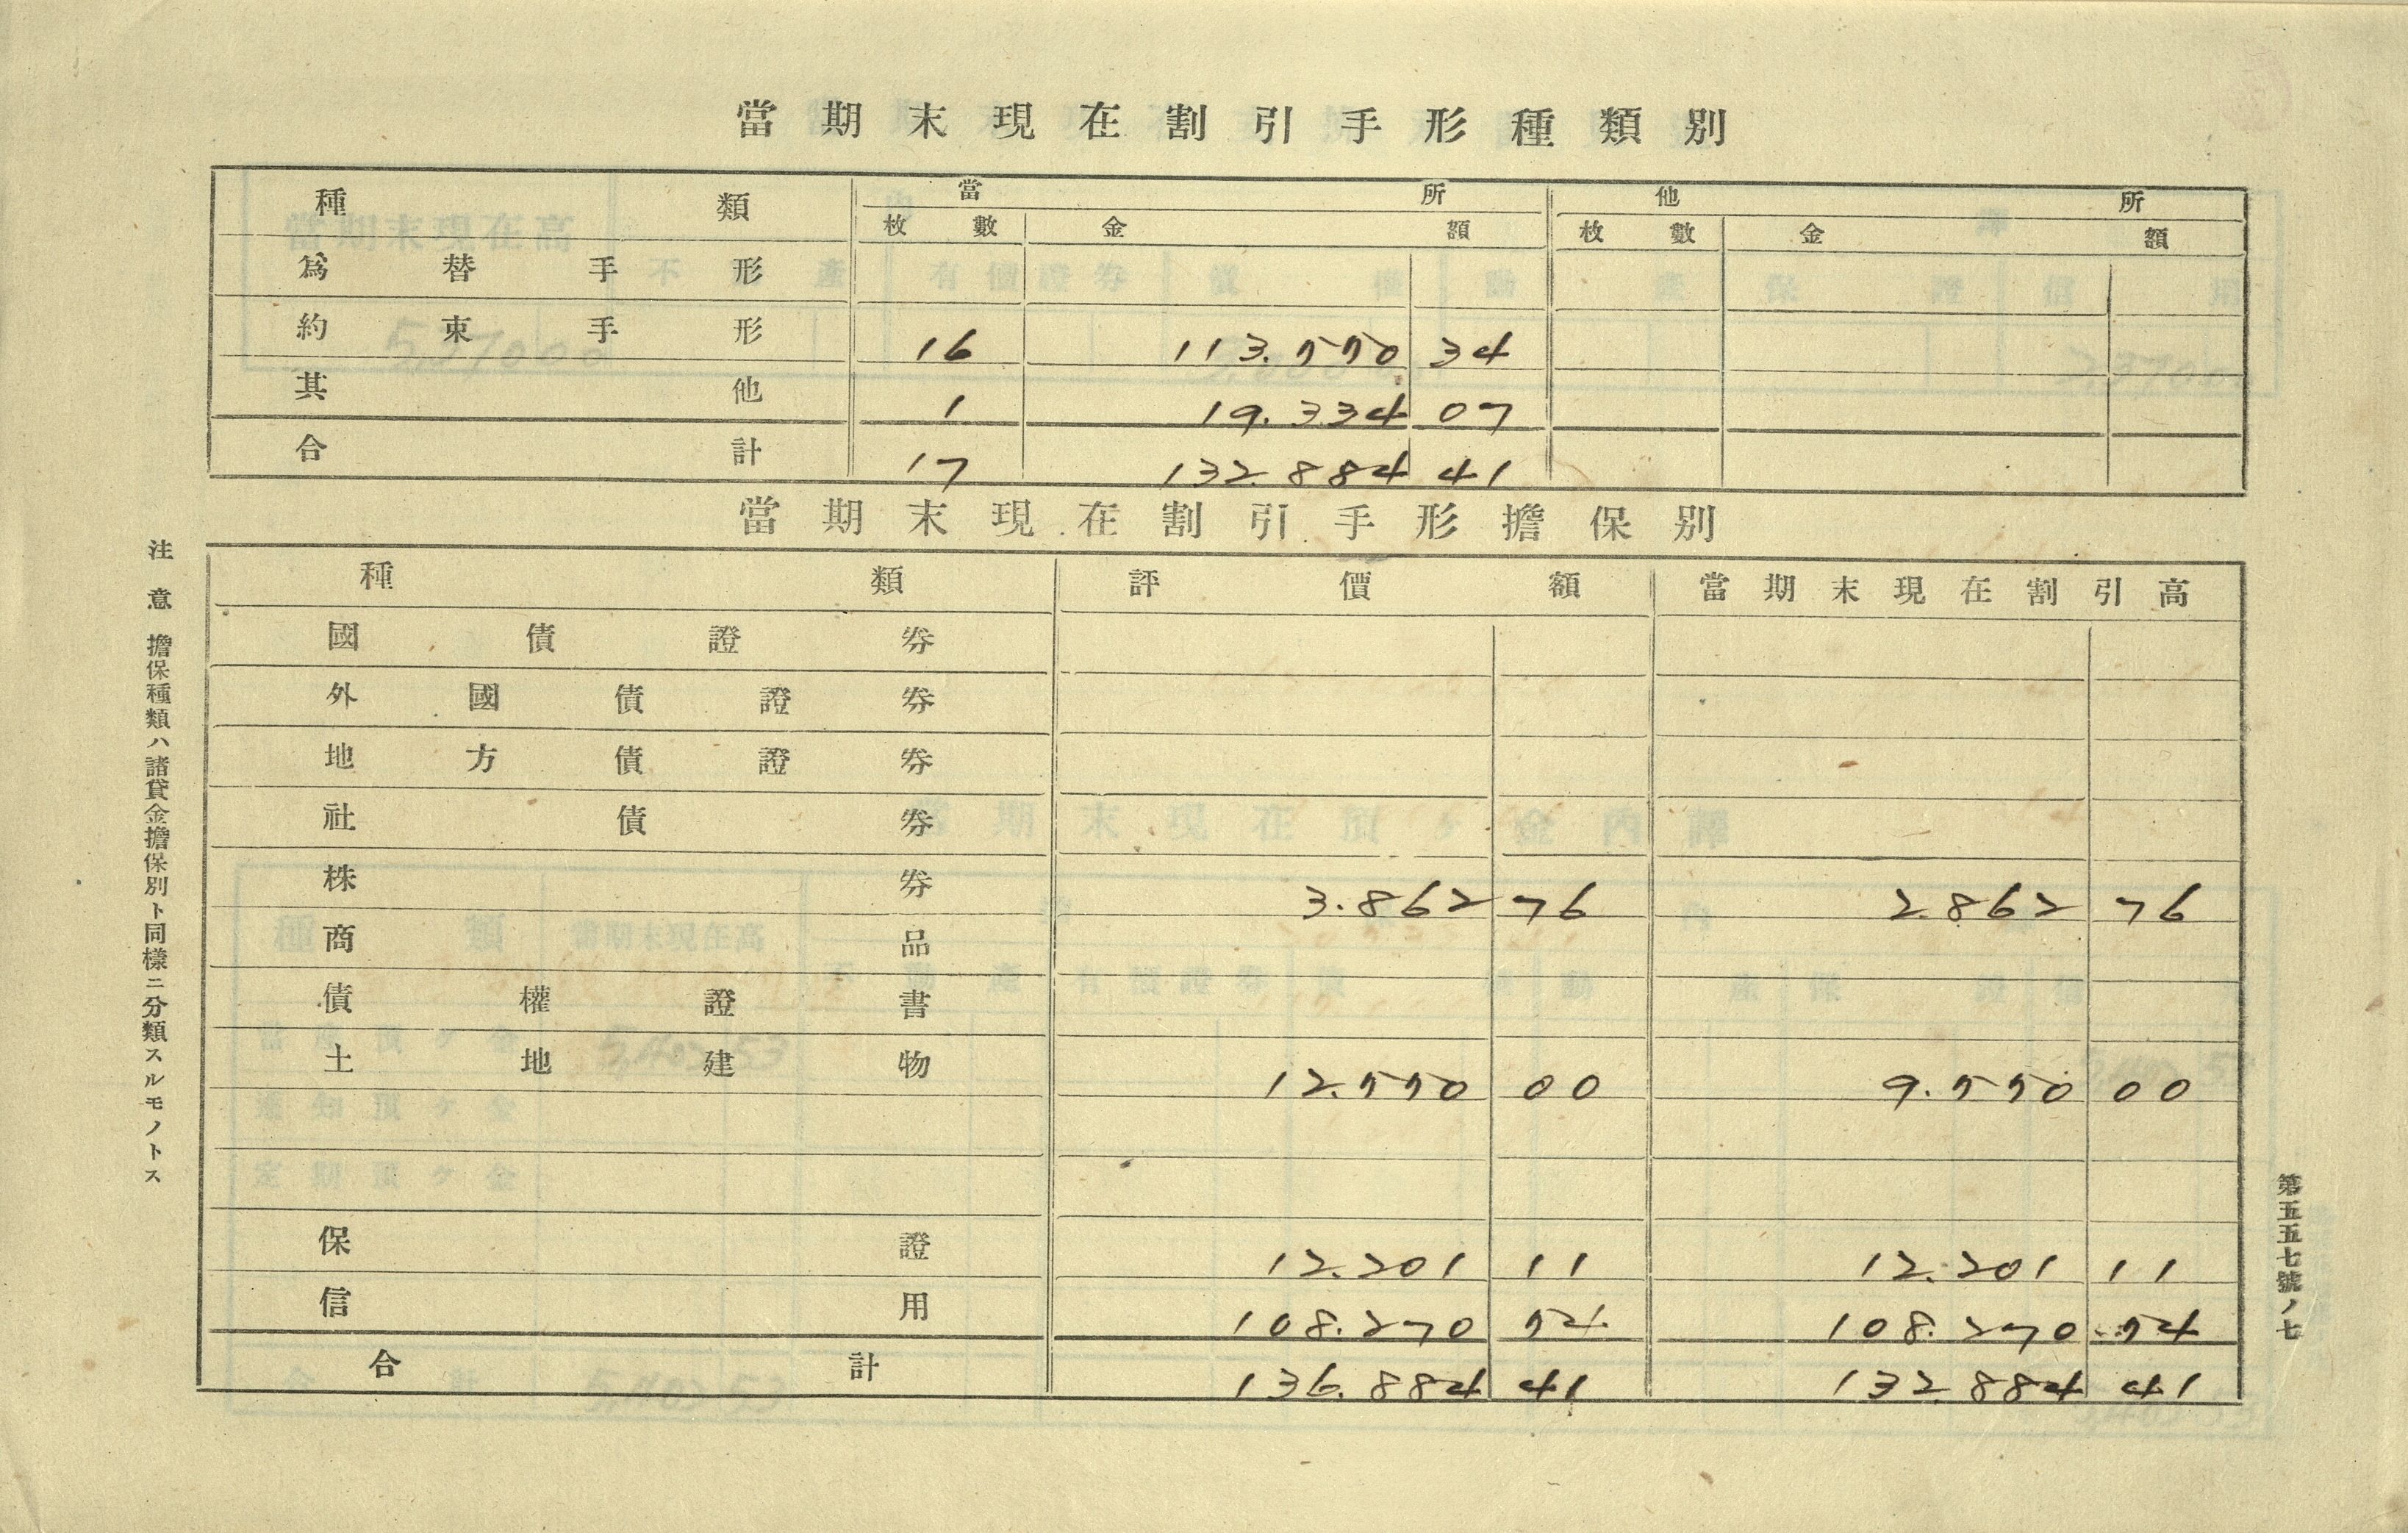 當期末現在割引手形種類別
種類 當所 他所
枚數 金額 枚數 金額
爲替手形
約束手形 16 113.550 34
其他 1 19.334 07
合計 17 132.884 41
當期末現在割引手形擔保別
種類 評價額 當期末現在割引高
國債證券
外國債證券
地方債證券
社債券
株券 3.862 76 2.862 76
商品
債權證書
土地建物 12.550 00 9.550 00
保證 12.201 11 12.201 11
信用 108.270 54 108.270 54
合計 136.884 41 132.884 41
注意 擔保種類ハ諸貸金擔保別ト同樣ニ分類スルモノトス
第五五七號ノ七